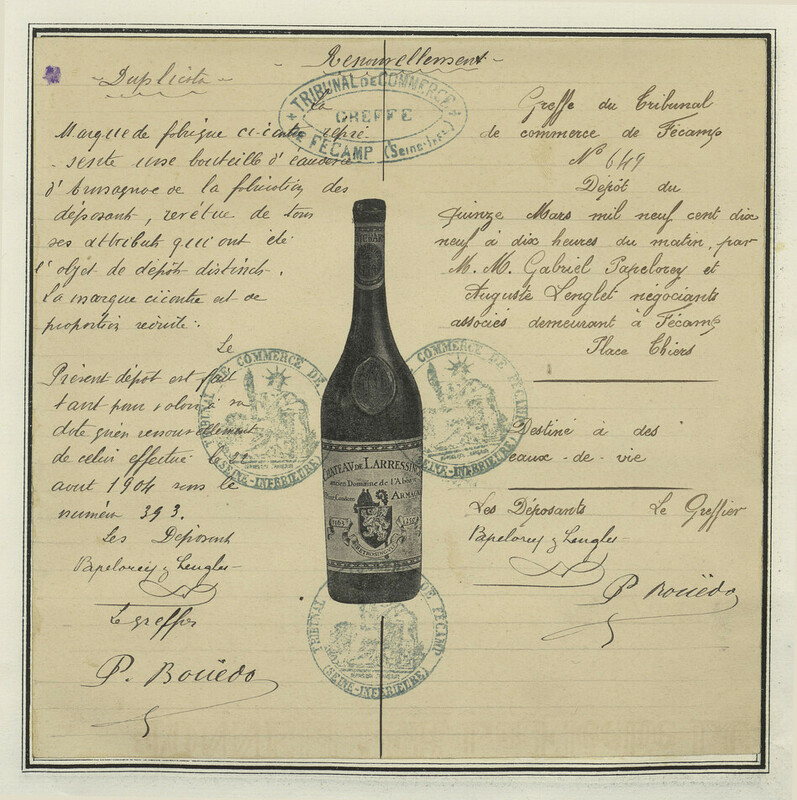 Renouvellement
Duplicata
La
Marque de fabrique ci-contre repré
sente une bouteille d'eau de vie
d'Armagnac de la fabrication des
déposant, revêtue de tous
ses attributs qui ont été
l'objet de dépôt distincts.
La marque ci contre est de
proportion réduite.
Le
Présent dépôt est fait
tant pour valoir à sa
date qu'en renouvellement
de celui effectué le 22
aout 1904 sous le
numéro 393.
Les Déposant
Papelorey & Lenglet
Le greffier
P. Bouëdo
TRIBUNAL DE COMMERCE
GREFFE
DE FÉCAMP (Seine-Infre)
Greffe du Tribunal
de commerce de Fécamp
No 649
Dépôt du
Quinze Mars mil neuf cent dix
neuf à dix heures du matin, par
M. M. Gabriel Papelorey et
Auguste Lenglet négociants
associés demeurant à Fécamp
Place Thiers
Destiné à des
eaux-de-vie
Les Déposants Le Greffier
Papelorey & Lenglet
P. Bouëdo
CHATEAU DE LARRESSINGLE
Ancien Domaine de l'Abbaye
ARMAGNAC
TRIBUNAL DE COMMERCE DE FÉCAMP
(SEINE-INFÉRIEURE)
TRIBUNAL DE COMMERCE DE FÉCAMP
(SEINE-INFÉRIEURE)
TRIBUNAL DE FÉCAMP
(SEINE-INFÉRIEURE)